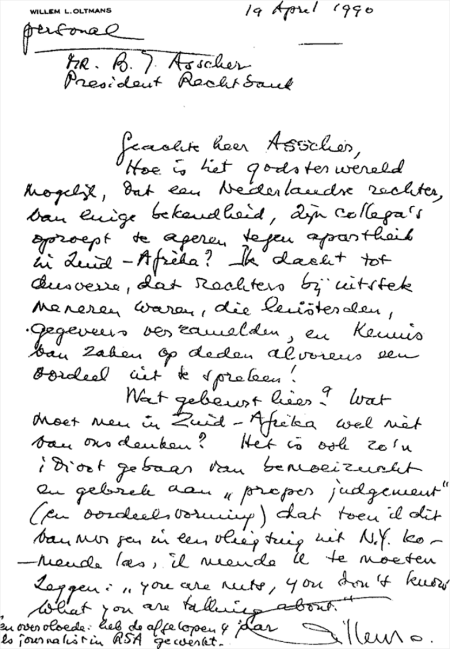 WILLEM L. OLTMANS
19 April 1990
personal
Mr. B. J. Asscher
President Rechtbank
Geachte heer Asscher,
Hoe is het godsterwereld
mogelijk, dat een Nederlandse rechter,
van enige bekendheid, zijn collega's
oproept te ageren tegen apartheid
in Zuid-Afrika? Ik dacht tot
dusverre, dat rechters bij uitstek
meneren waren, die luisterden,
gegevens verzamelden, en kennis
van zaken op deden alvorens een
oordeel uit te spreken!
Wat gebeurt hier? Wat
moet men in Zuid-Afrika wel niet
van ons denken? Het is ook zo'n
idioot gebaar van bemoeizucht
en gebrek aan „proper judgement"
(en oordeelsvorming) dat toen ik dit
van morgen in een vliegtuig uit N.Y. ko-
-mende las, ik meende U te moeten
zeggen: „you are nuts, you don't know
what you are talking about."
ten overvloede: heb de afgelopen 4 jaar
als journalist in RSA gewerkt.
Willem O.